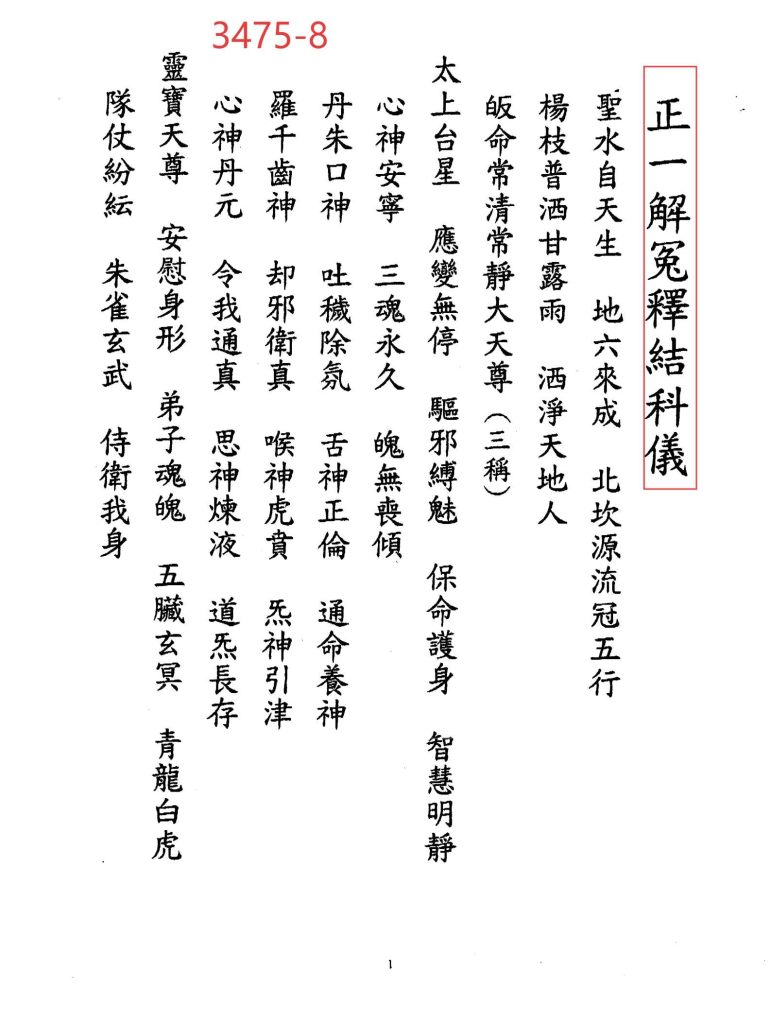 3475-8
正一解冤釋結科儀
聖水自天生　地六來成　北坎源流冠五行
楊枝普洒甘露雨　洒淨天地人
皈命常清常靜大天尊（三稱）
太上台星　應變無停　驅邪縛魅　保命護身　智慧明靜
心神安寧　三魂永久　魄無喪傾
丹朱口神　吐穢除氛　舌神正倫　通命養神
羅千齒神　却邪衛真　喉神虎賁　炁神引津
心神丹元　令我通真　思神煉液　道炁長存
靈寶天尊　安慰身形　弟子魂魄　五臟玄冥　青龍白虎
隊仗紛紜　朱雀玄武　侍衛我身
1